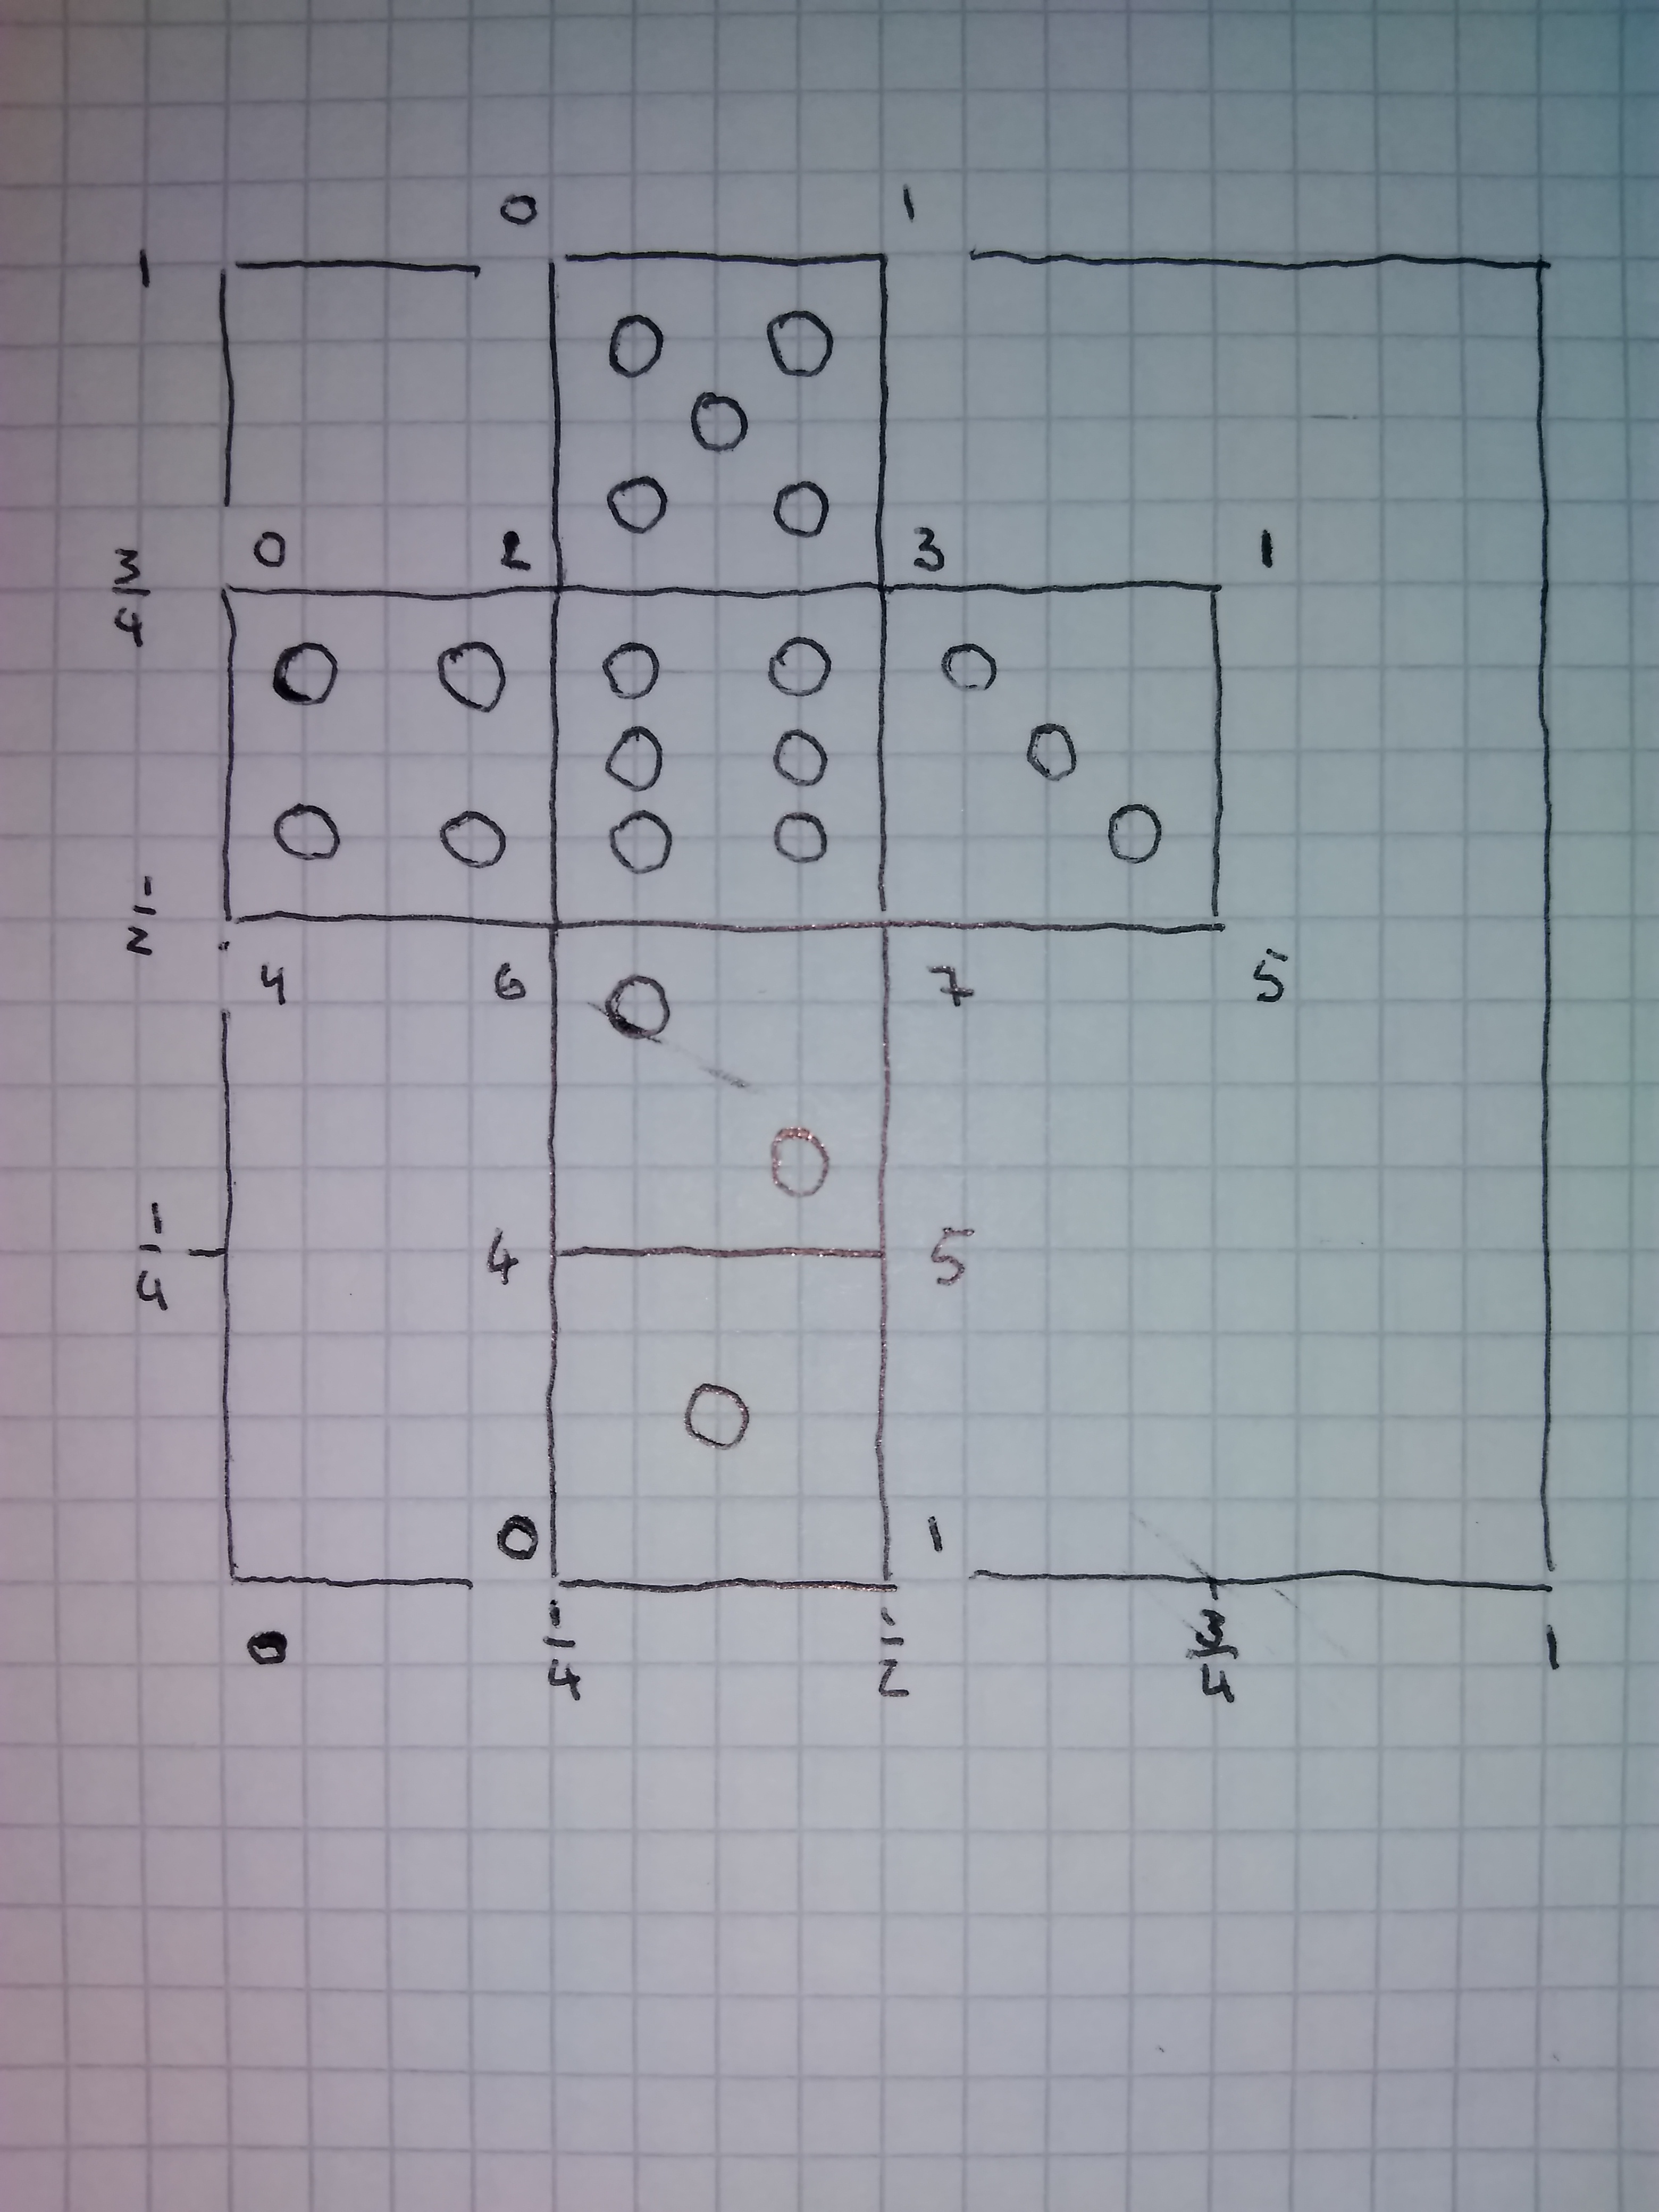 0 1
1
0 2 3 1
3/4
1/2
4 6 7 5
1/4
4 5
0 1
0 1/4 1/2 3/4 1